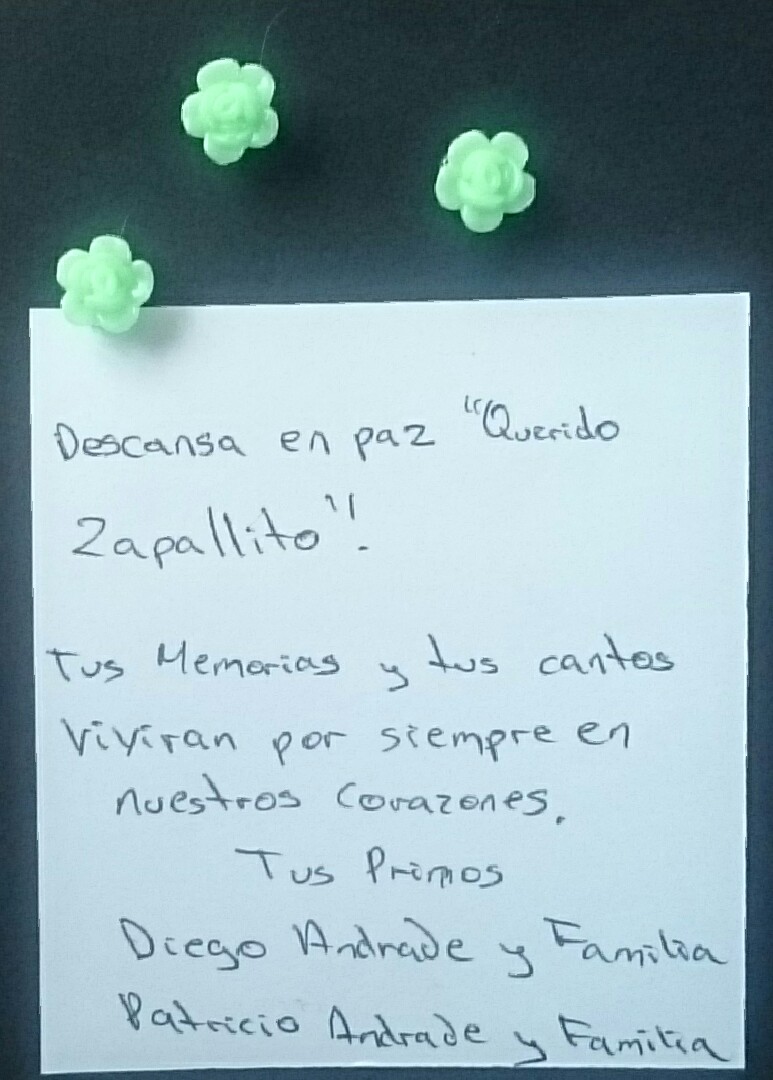 Descansa en paz "Querido
Zapallito".
Tus Memorias y tus cantos
Viviran por siempre en
nuestros Corazones.
Tus Primos
Diego Andrade y Familia
Patricio Andrade y Familia